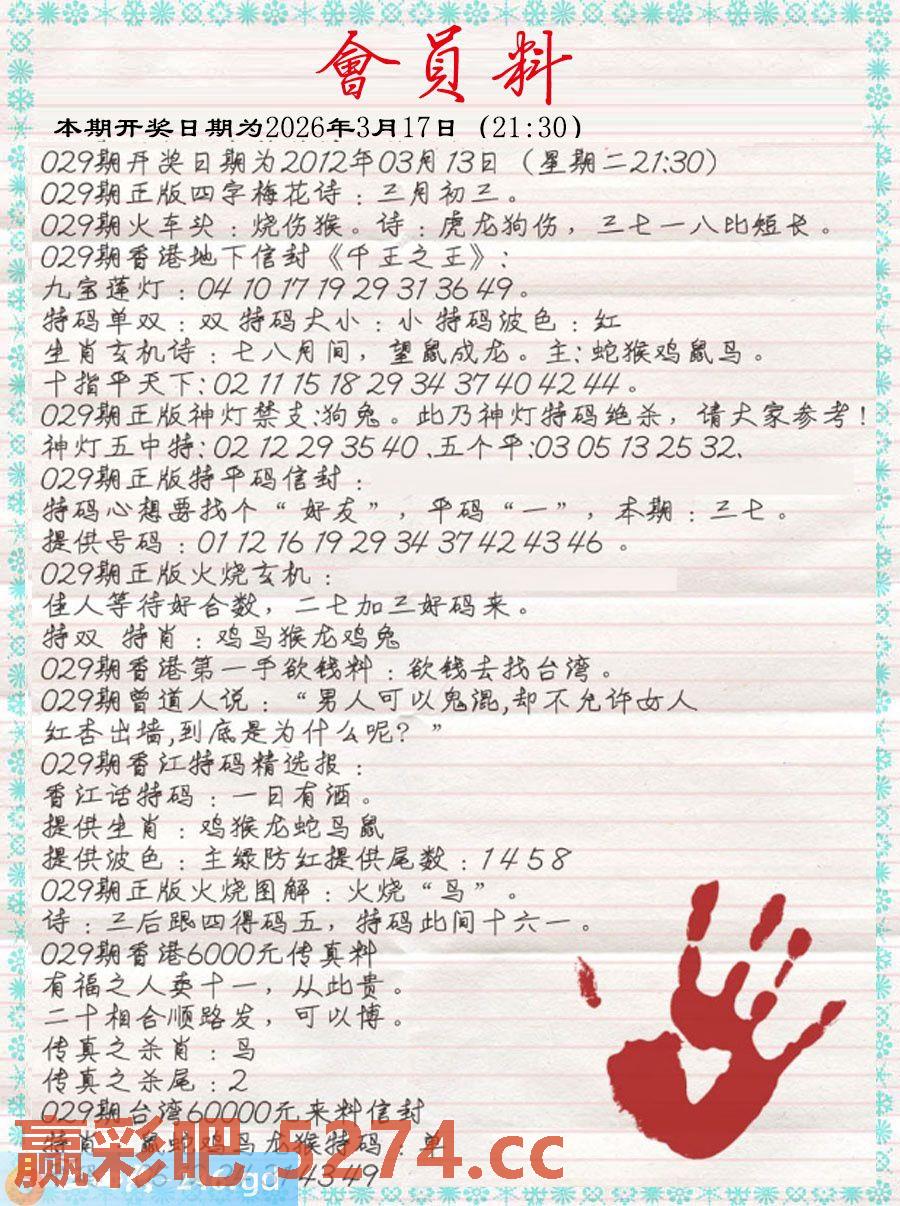 會員料
本期开奖日期为2026年3月17日（21:30）
029期开奖日期为2012年03月13日（星期二21:30）
029期正版四字梅花诗：三月初三。
029期火车头：烧伤猴。诗：虎龙狗伤，三七一八比短长。
029期香港地下信封《千王之王》:
九宝莲灯：04 10 17 19 29 31 36 49。
特码单双：双 特码大小：小 特码波色：红
生肖玄机诗：七八月间，望鼠成龙。主:蛇猴鸡鼠鸟。
十指平天下:02 11 15 18 29 34 37 40 42 44。
029期正版神灯禁支:狗兔。此乃神灯特码绝杀，请大家参考！
神灯五中特:02 12 29 35 40 、五个平:03 05 13 25 32、
029期正版特平码信封：
特码心想要找个“好友”，平码“一”，本期：三七。
提供号码：01 12 16 19 29 34 37 42 43 46 。
029期正版火烧玄机：
佳人等待好合数，二七加三好码来。
特双 特肖：鸡鸟猴龙鸡兔
029期香港第一手欲钱料：欲钱去找台湾。
029期曾道人说：“男人可以鬼混,却不允许女人
红杏出墙,到底是为什么呢？”
029期香江特码精选报：
香江话特码：一日有酒。
提供生肖：鸡猴龙蛇鸟鼠
提供波色：主绿防红提供尾数：1 4 5 8
029期正版火烧图解：火烧“鸟”。
诗：三后跟四得码五，特码此间十六一。
029期香港6000元传真料
有福之人卖十一，从此贵。
二十相合顺路发，可以博。
传真之杀肖：鸟
传真之杀尾：2
029期台湾60000元来料信封
特肖 鼠蛇鸡鸟龙猴特码：单
43 49
赢彩吧.5274.cc